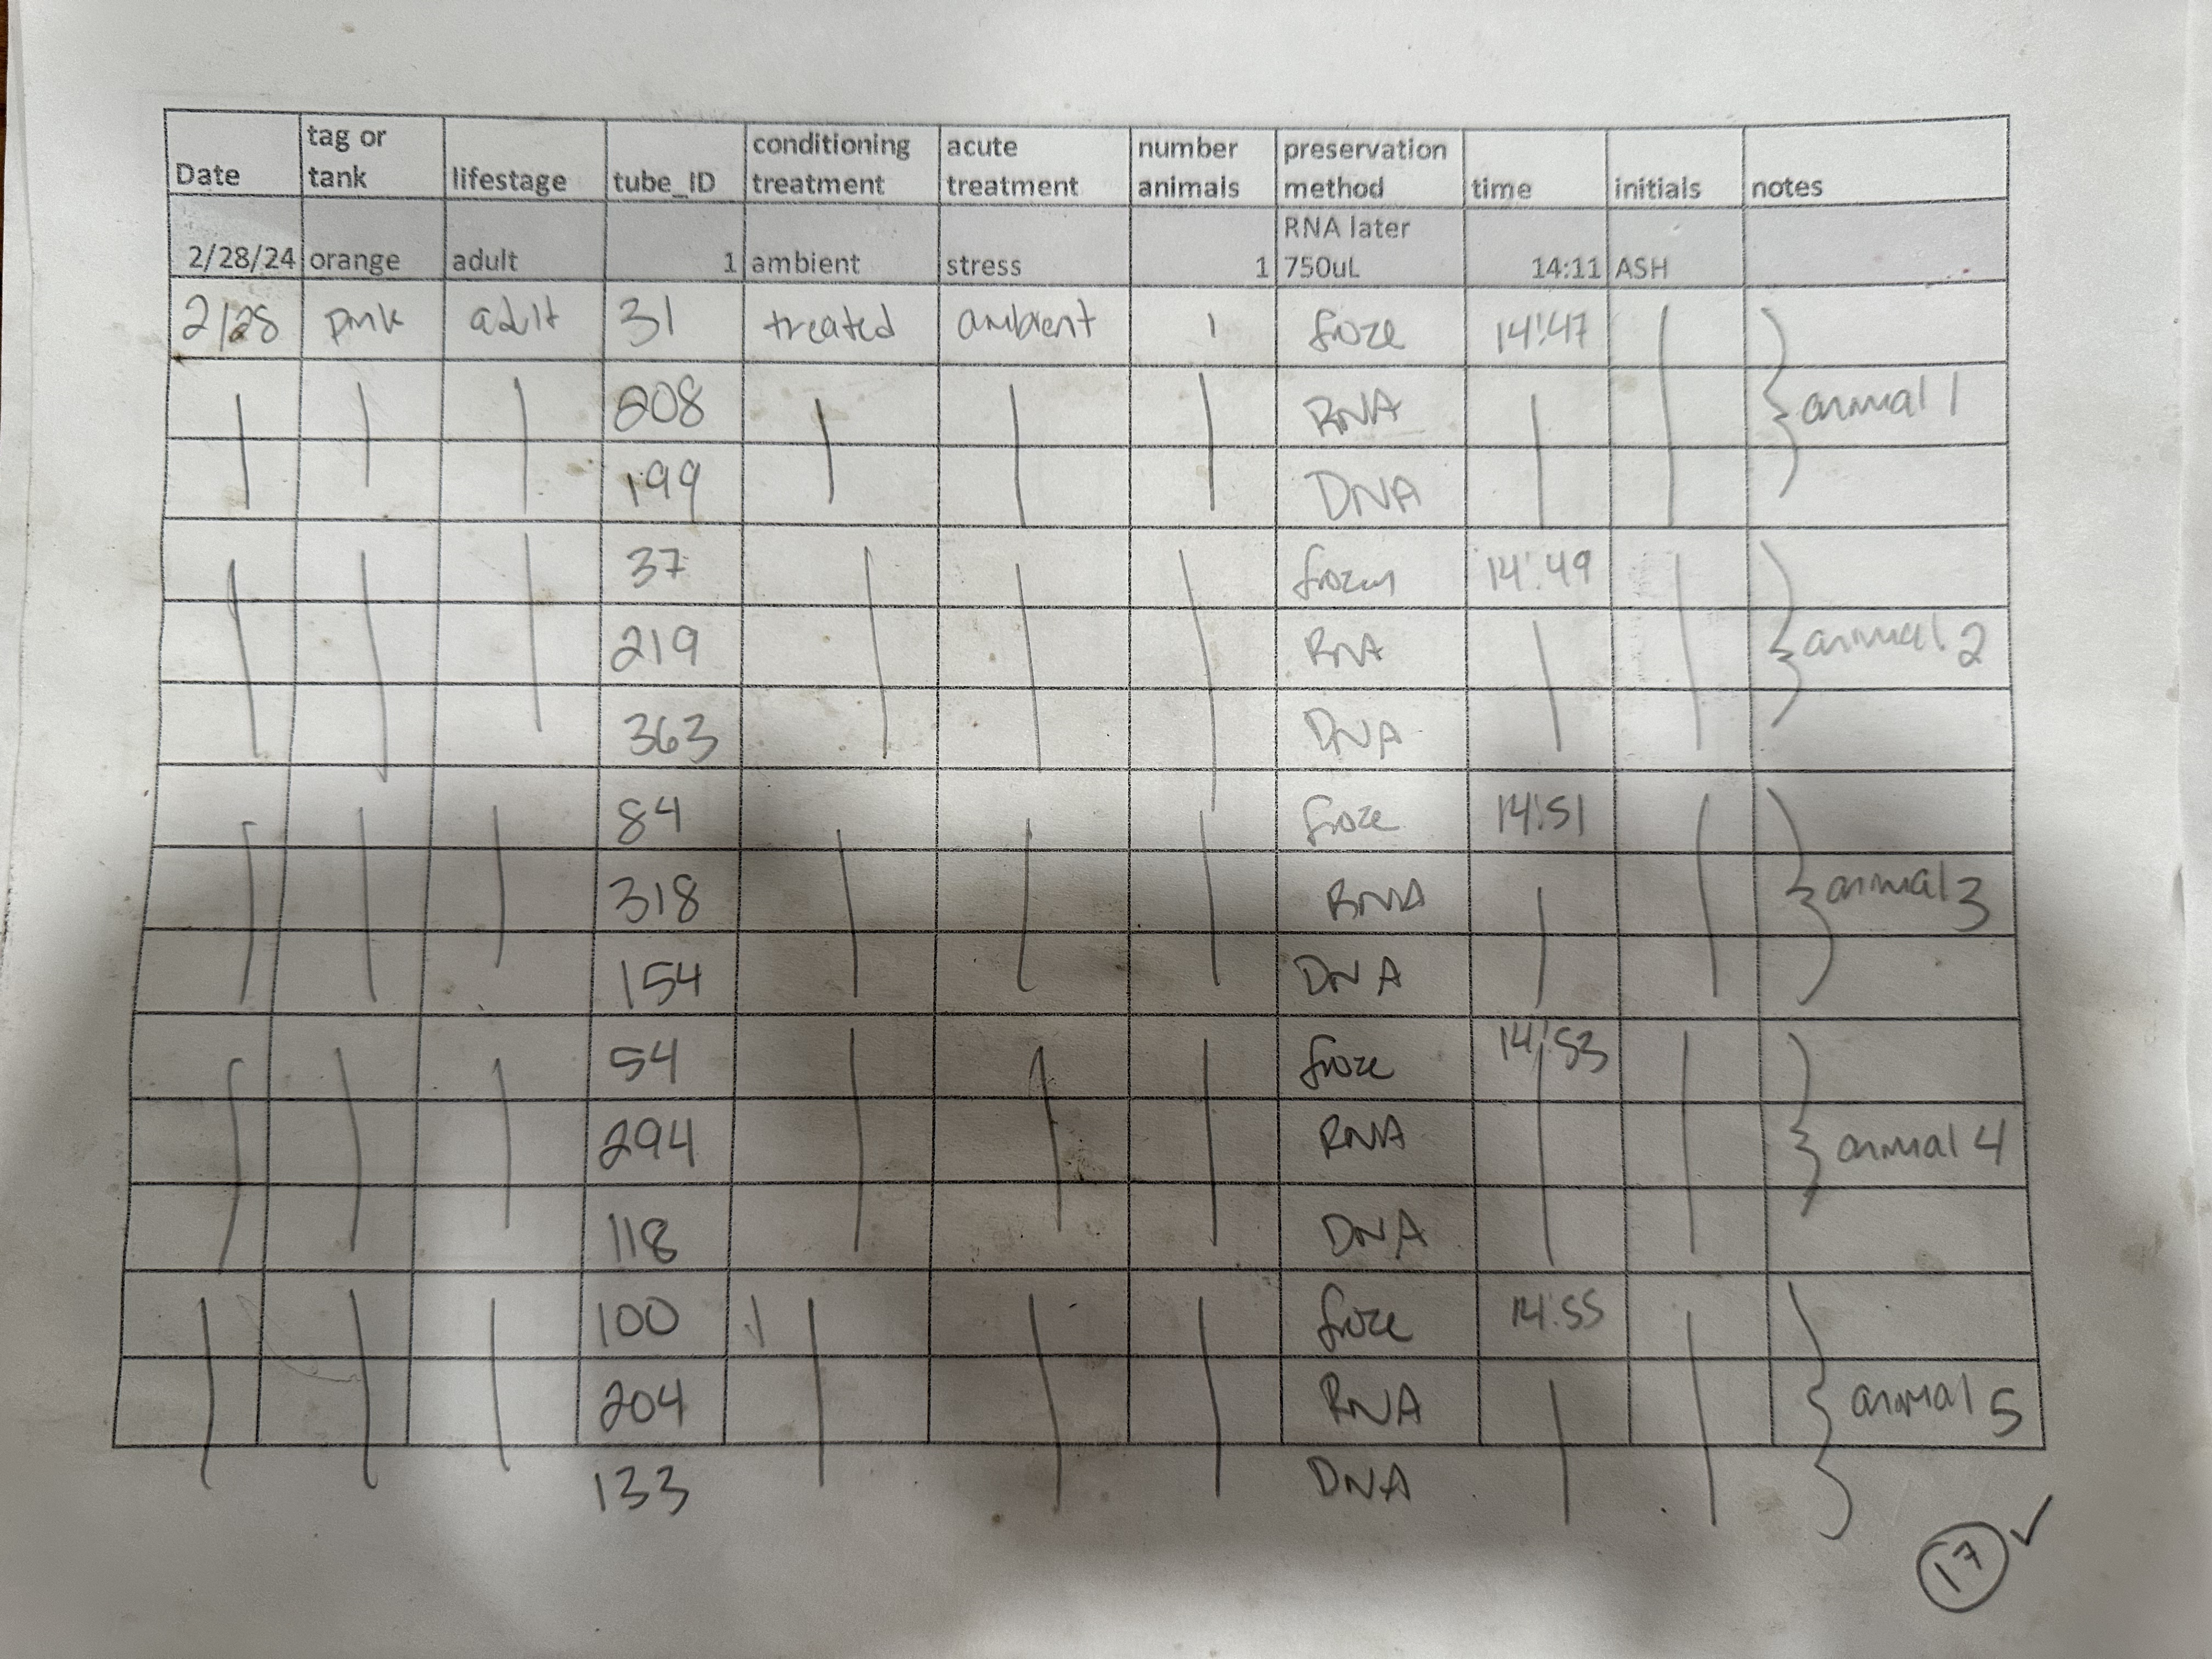 Date tag or tank lifestage tube_ID conditioning treatment acute treatment number animals preservation method time initials notes
2/28/24 orange adult 1 ambient stress 1 RNA later 750uL 14:11 ASH
2/28 pink adult 31 treated ambient 1 froze 14:47
208 RNA } animal 1
199 DNA
37 frozen 14:49
219 RNA } animal 2
363 DNA
84 froze 14:51
318 RNA } animal 3
154 DNA
54 froze 14:53
294 RNA } animal 4
118 DNA
100 froze 14:55
204 RNA } animal 5
133 DNA
17 ✓